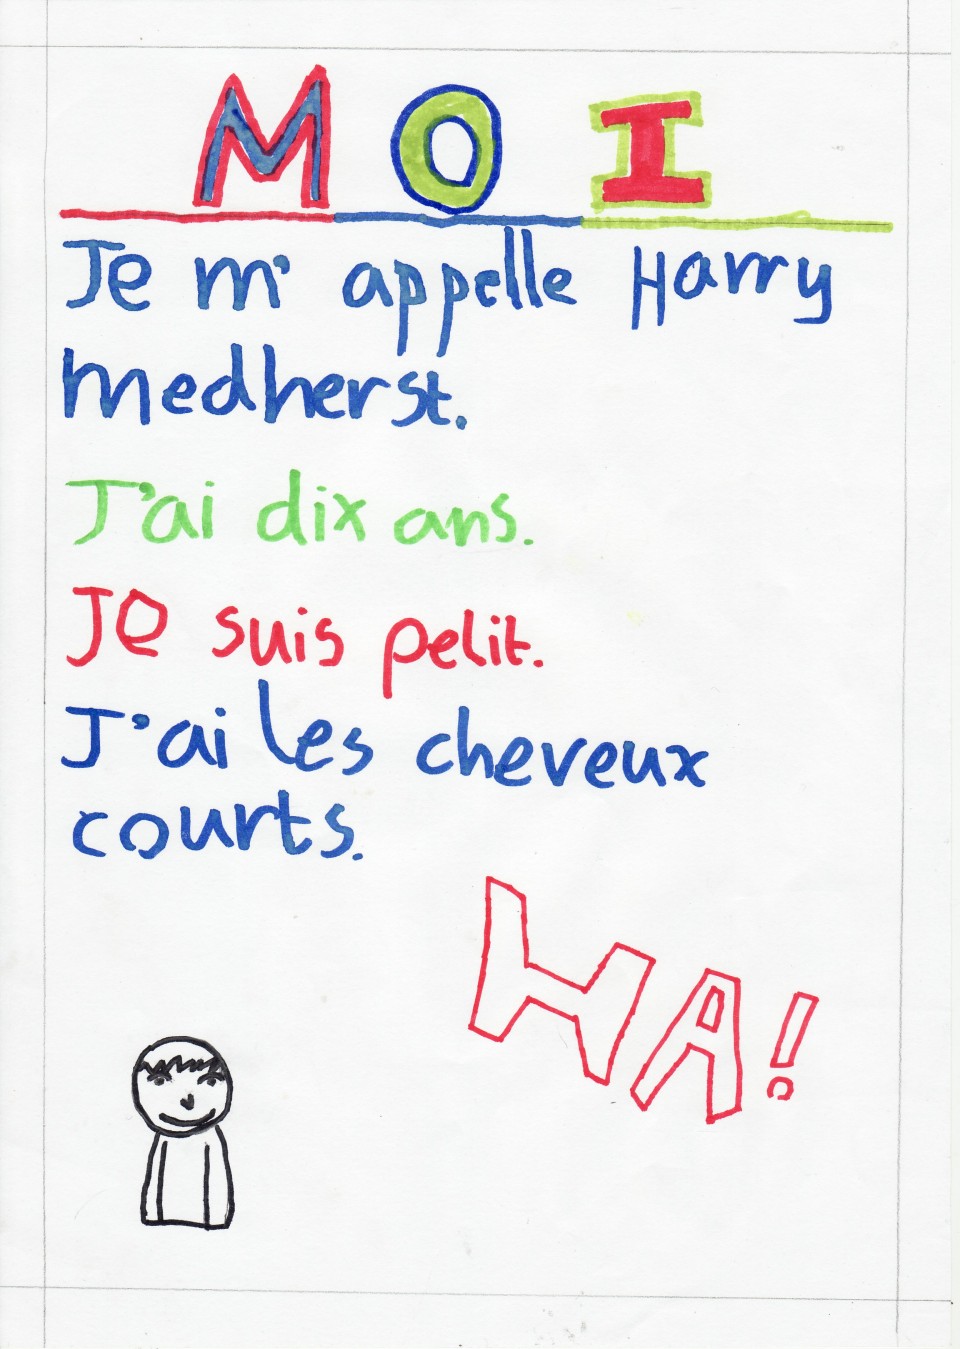 MOI
Je m' appelle Harry
Medherst.
J'ai dix ans.
Je suis petit.
J'ai les cheveux
courts.
HA!